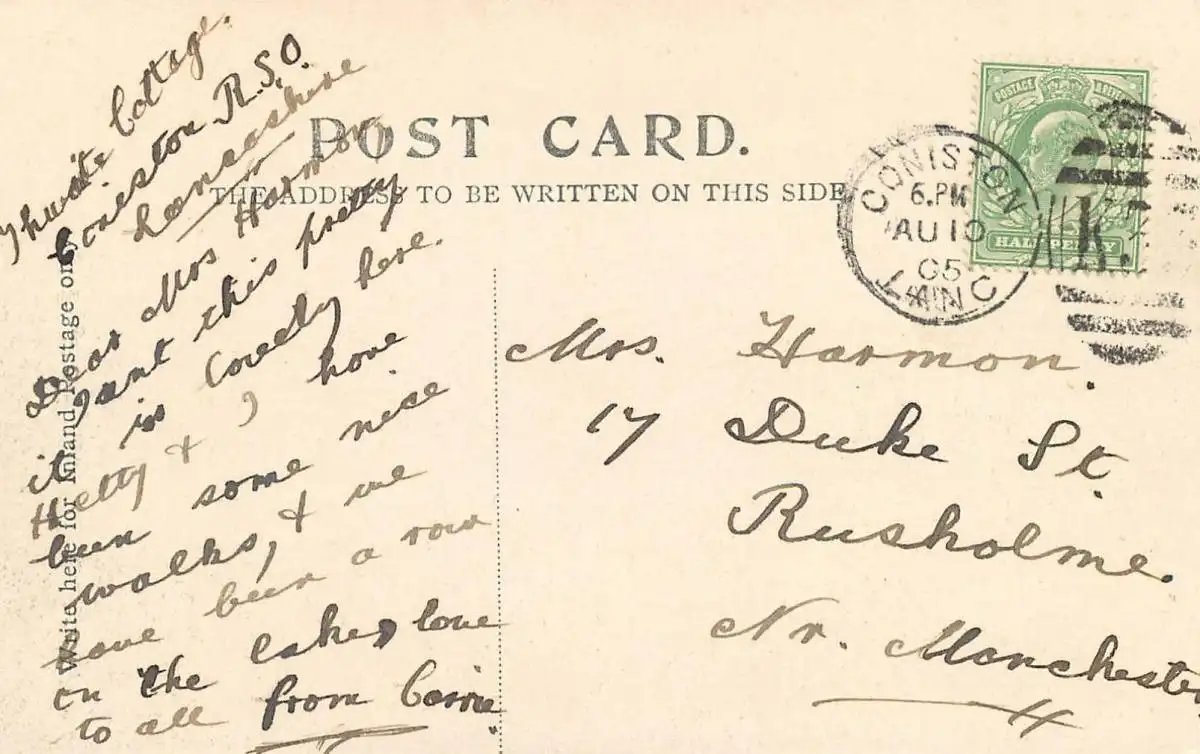 Thwaite Cottage.
Coniston R.S.O.
Lancashire
Dear Mrs Harmon
isnt this pretty
it is lovely here.
Hetty & I have
been some nice
walks, & we
have been a row
on the lake, love
to all from Carrie.
Write here for Inland Postage only
POST CARD.
THE ADDRESS TO BE WRITTEN ON THIS SIDE
CONISTON
6.PM
AU 10
05
LANC
POSTAGE
HALFPENNY
Mrs. Harmon.
17 Duke St.
Rusholme.
Nr. Manchester